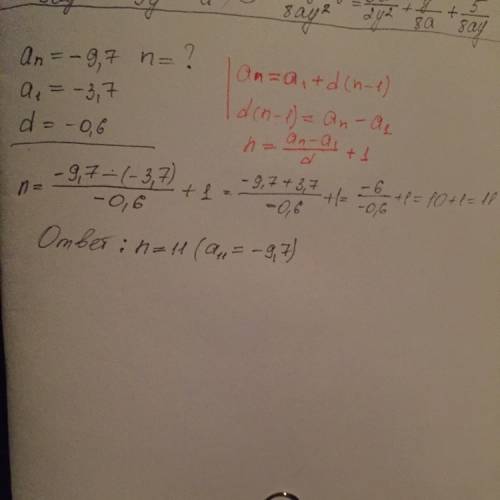 8ay² 2y² + 8a + 5/8ay
aₙ = -9,7 n = ?
a₁ = -3,7
d = -0,6
aₙ = a₁ + d(n-1)
d(n-1) = aₙ - a₁
n = (aₙ - a₁)/d + 1
n = (-9,7 - (-3,7))/(-0,6) + 1 = (-9,7 + 3,7)/(-0,6) + 1 = (-6)/(-0,6) + 1 = 10 + 1 = 11
Ответ: n = 11 (a₁₁ = -9,7)